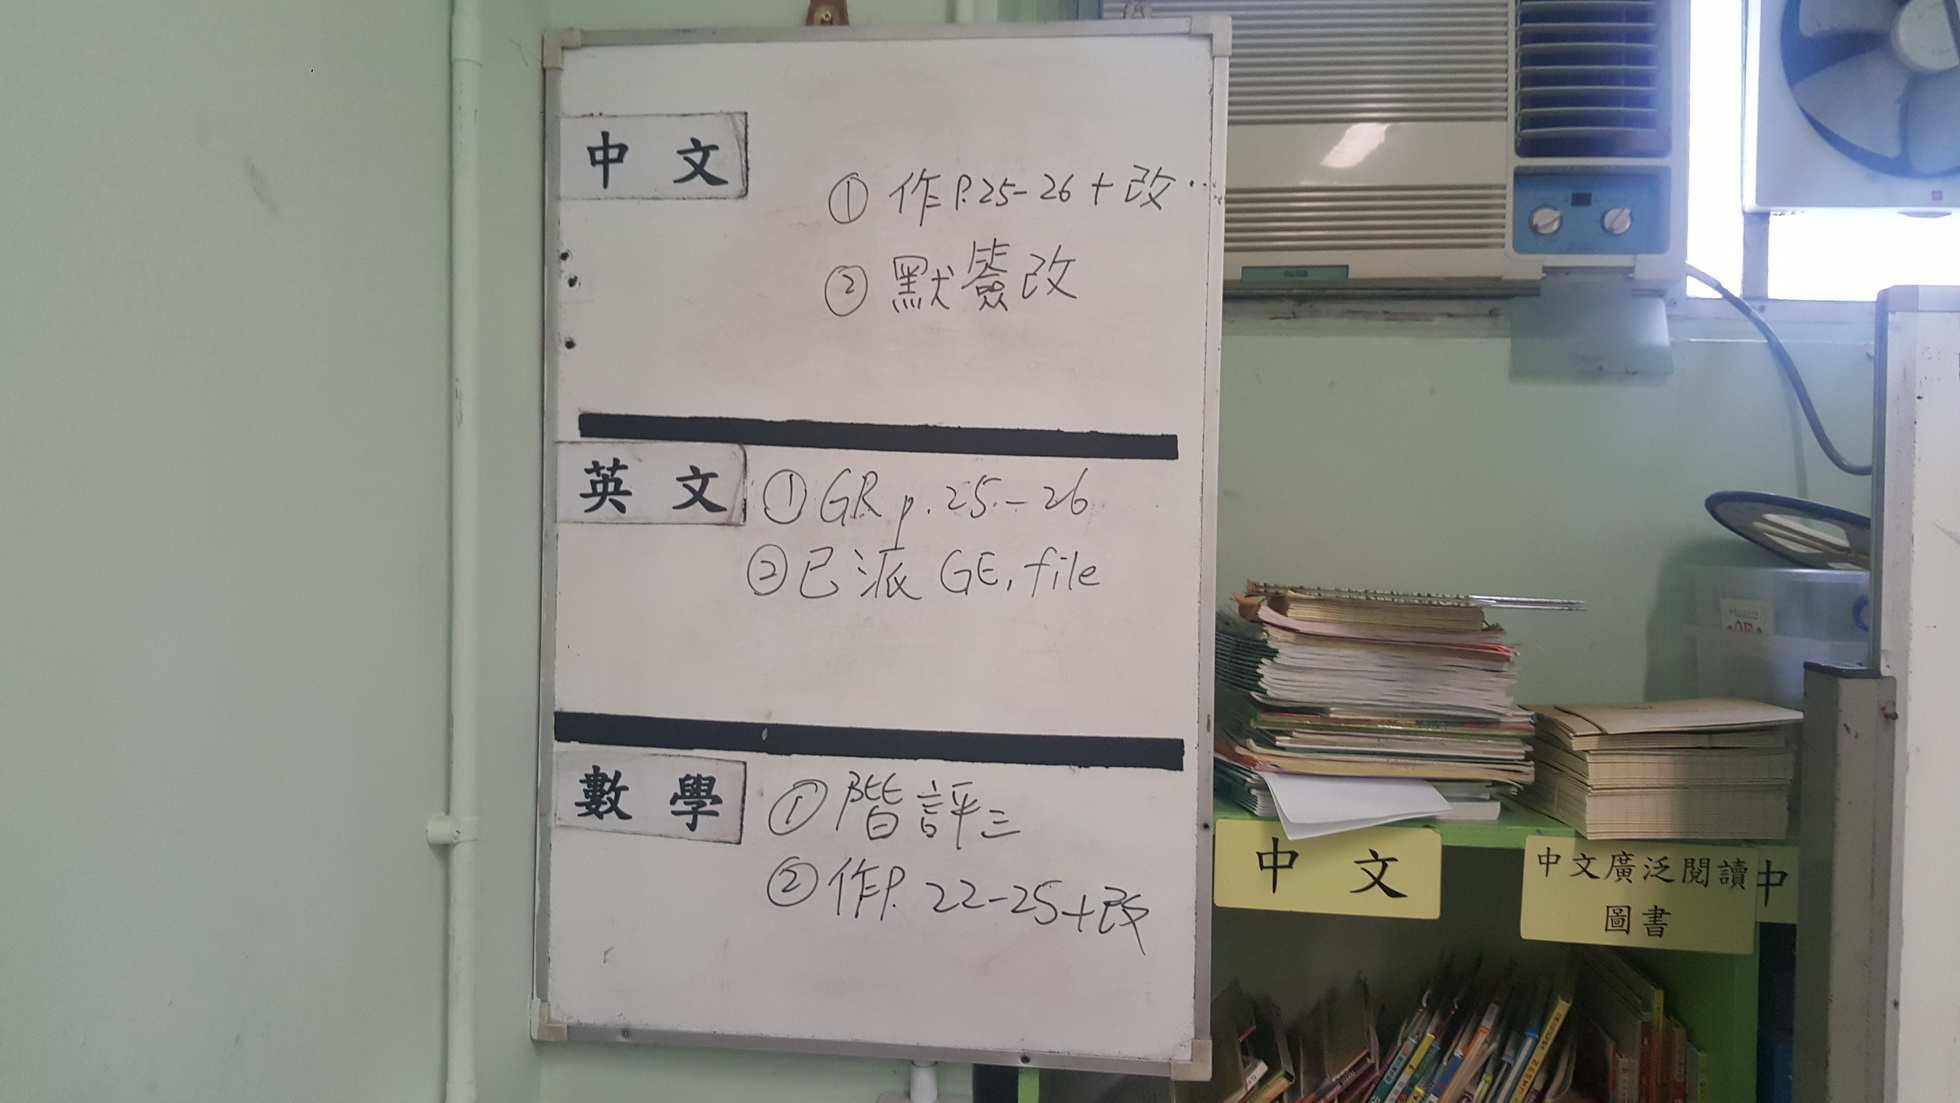 中文
① 作P.25-26+改..
② 默簽改
英文
① GR p.25-26
② 已派 GE, file
數學
① 階評三
② 作P. 22-25+改
中文
中文廣泛閱讀
圖書
中